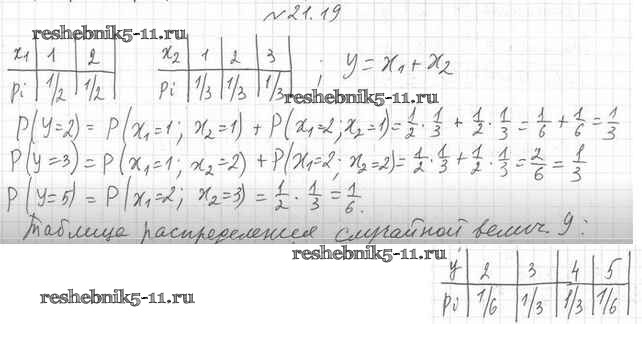 №21.19
reshebnik5-11.ru
x₁ | 1 | 2
pi | 1/2 | 1/2
x₂ | 1 | 2 | 3
pi | 1/3 | 1/3 | 1/3
; y = x₁ + x₂
reshebnik5-11.ru
P(y=2) = P(x₁=1; x₂=1) + P(x₁=2; x₂=1) = 1/2 · 1/3 + 1/2 · 1/3 = 1/6 + 1/6 = 1/3
P(y=3) = P(x₁=1; x₂=2) + P(x₁=2; x₂=2) = 1/2 · 1/3 + 1/2 · 1/3 = 2/6 = 1/3
P(y=5) = P(x₁=2; x₂=3) = 1/2 · 1/3 = 1/6.
Таблица распределения случайной велич. y:
reshebnik5-11.ru
y | 2 | 3 | 4 | 5
pi | 1/6 | 1/3 | 1/3 | 1/6
reshebnik5-11.ru